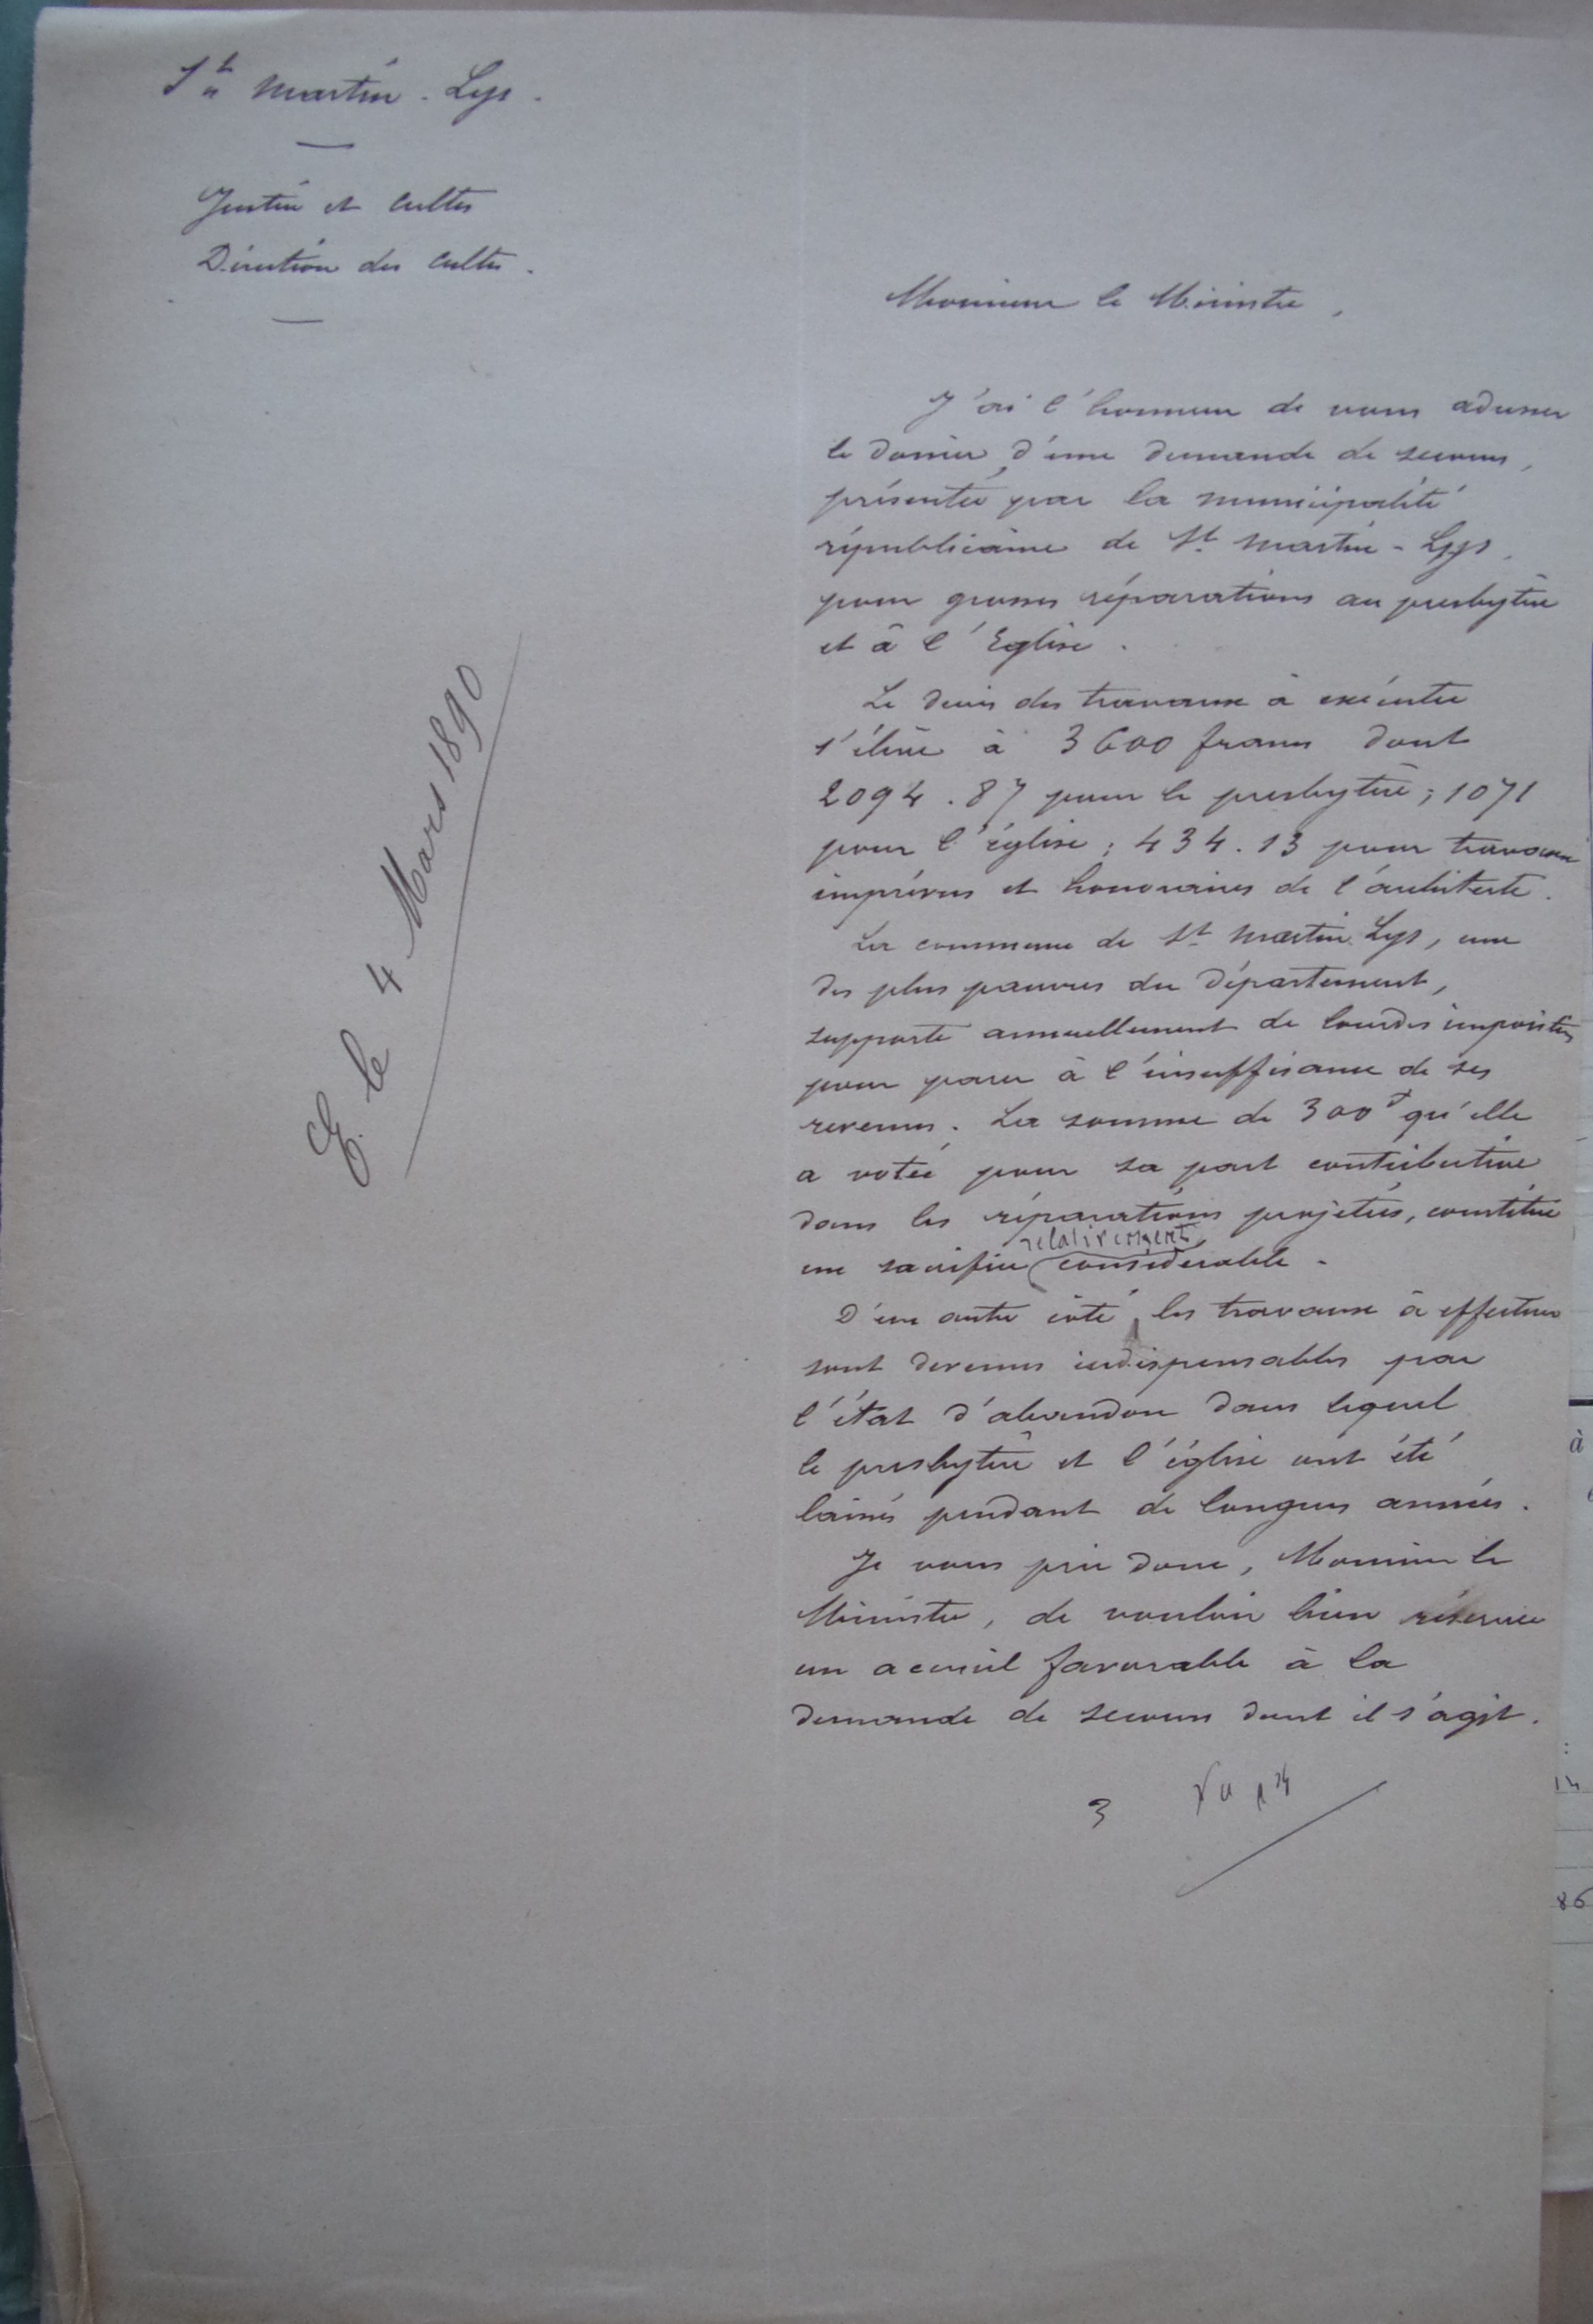 St Martin - Lys.
Justice et Cultes
Direction des Cultes.
E. le 4 Mars 1890
Monsieur le Ministre,
J'ai l'honneur de vous adresser
le dossier d'une demande de secours,
présentée par la municipalité
républicaine de St Martin - Lys
pour grosses réparations au presbytère
et à l'Eglise.
Le devis des travaux à exécuter
s'élève à 3600 francs dont
2094.87 pour le presbytère; 1071
pour l'église; 434.13 pour travaux
imprévus et honoraires de l'architecte.
La commune de St Martin Lys, une
des plus pauvres du Département,
supporte annuellement de lourdes impositions
pour parer à l'insuffisance de ses
revenus. La somme de 300f qu'elle
a votée pour sa part contributive
dans les réparations projetées, constitue
relativement
un sacrifice considérable.
D'un autre côté, les travaux à effectuer
sont devenus indispensables par
l'état d'abandon dans lequel
le presbytère et l'église ont été
laissés pendant de longues années.
Je vous prie donc, Monsieur le
Ministre, de vouloir bien réserver
un accueil favorable à la
demande de secours dont il s'agit.
3
à
:
14
86